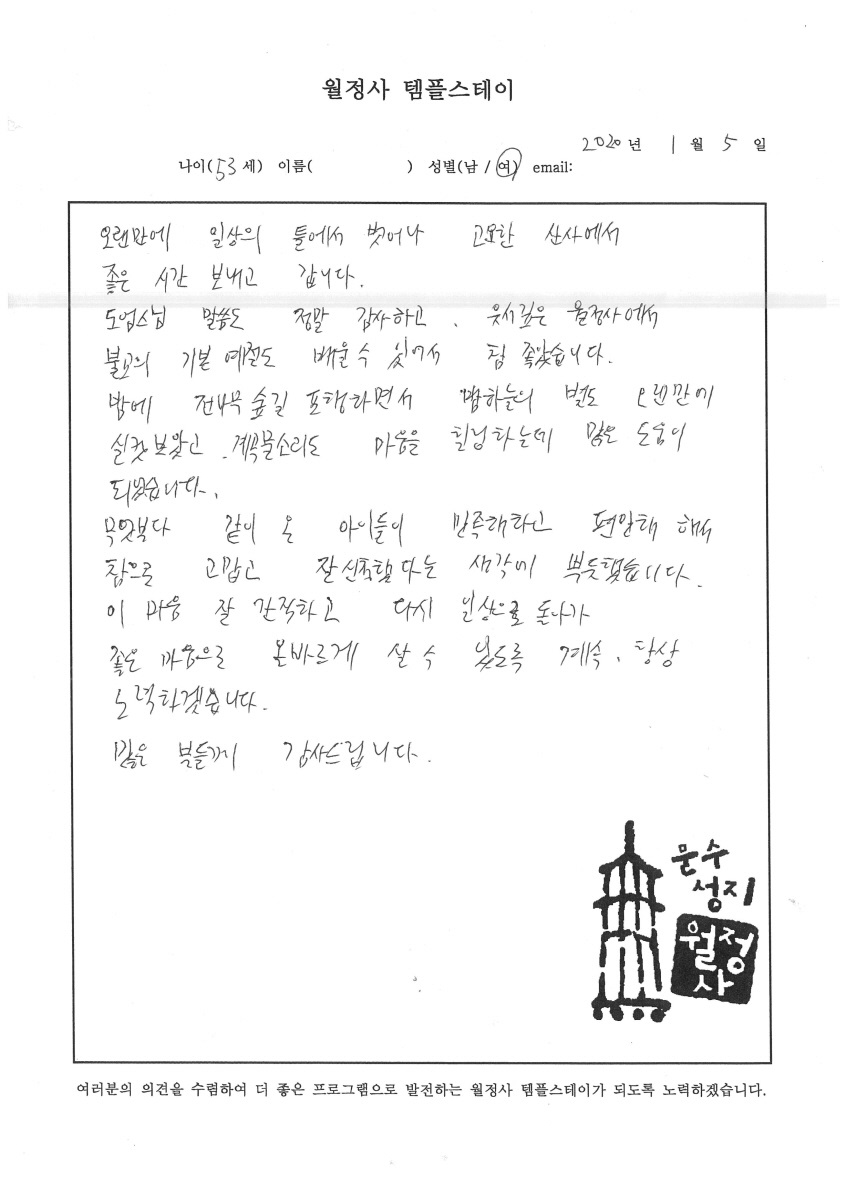 월정사 템플스테이
2020년 1월 5일
나이(53세) 이름( ) 성별(남 / 여) email:
오랜만에 일상의 틀에서 벗어나 고요한 산사에서
좋은 시간 보내고 갑니다.
도업스님 말씀도 정말 감사하고, 유서깊은 월정사에서
불교의 기본 예절도 배울 수 있어서 참 좋았습니다.
밤에 전나무 숲길 포행하면서 밤하늘의 별도 오랜만에
실컷 보았고, 계곡물소리도 마음을 힐링하는데 많은 도움이
되었습니다.
무엇보다 같이 온 아이들이 만족해하고 편안해 해서
참으로 고맙고 잘 신청했다는 생각에 뿌듯했습니다.
이 마음 잘 간직하고 다시 일상으로 돌아가
좋은 마음으로 올바르게 살 수 있도록 계속, 항상
노력하겠습니다.
많은 분들께 감사드립니다.
문수
성지
월정
사
여러분의 의견을 수렴하여 더 좋은 프로그램으로 발전하는 월정사 템플스테이가 되도록 노력하겠습니다.